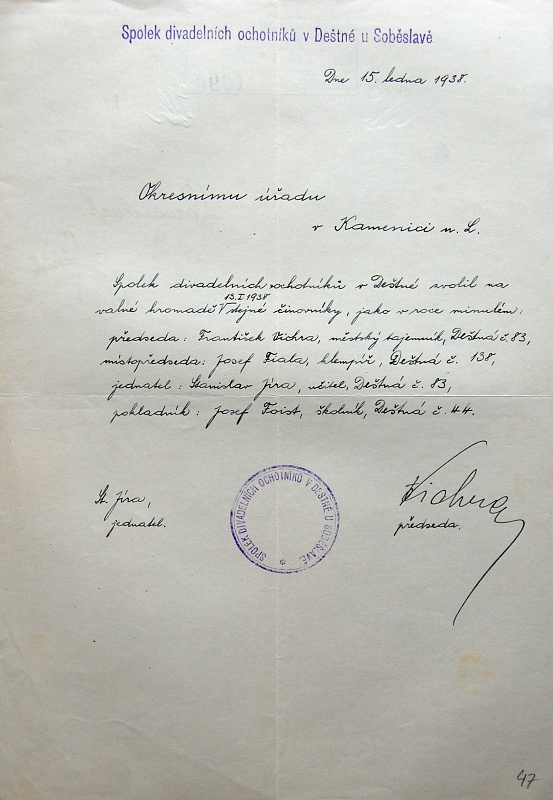 Spolek divadelních ochotníků v Deštné u Soběslavě
Dne 15. ledna 1938.
Okresnímu úřadu
v Kamenici n. L.
Spolek divadelních ochotníků v Deštné zvolil na
13. I. 1938
valné hromadě V stejné činovníky, jako v roce minulém:
předseda: František Vichra, městský tajemník, Deštná č. 83,
místopředseda: Josef Fiala, klempíř, Deštná č. 138,
jednatel: Stanislav Jíra, učitel, Deštná č. 83,
pokladník: Josef Foist, školník, Deštná č. 44.
St. Jíra,
jednatel.
SPOLEK DIVADELNÍCH OCHOTNÍKŮ V DEŠTNÉ U SOBĚSLAVĚ *
Vichra
předseda.
47